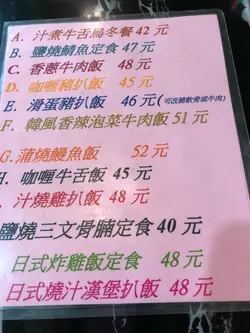 A. 汁煮牛舌烏冬餐 42 元
B. 鹽燒鯖魚定食 47 元
C. 香蔥牛肉飯 48 元
D. 咖喱豬扒飯 45 元
E. 滑蛋豬扒飯 46 元(可改豬軟骨或牛肉)
F. 韓風香辣泡菜牛肉飯 51 元
G. 蒲燒鰻魚飯 52 元
H. 咖喱牛舌飯 45 元
. 汁燒雞扒飯 48 元
鹽燒三文骨腩定食 40 元
日式炸雞飯定食 48 元
日式燒汁漢堡扒飯 48 元